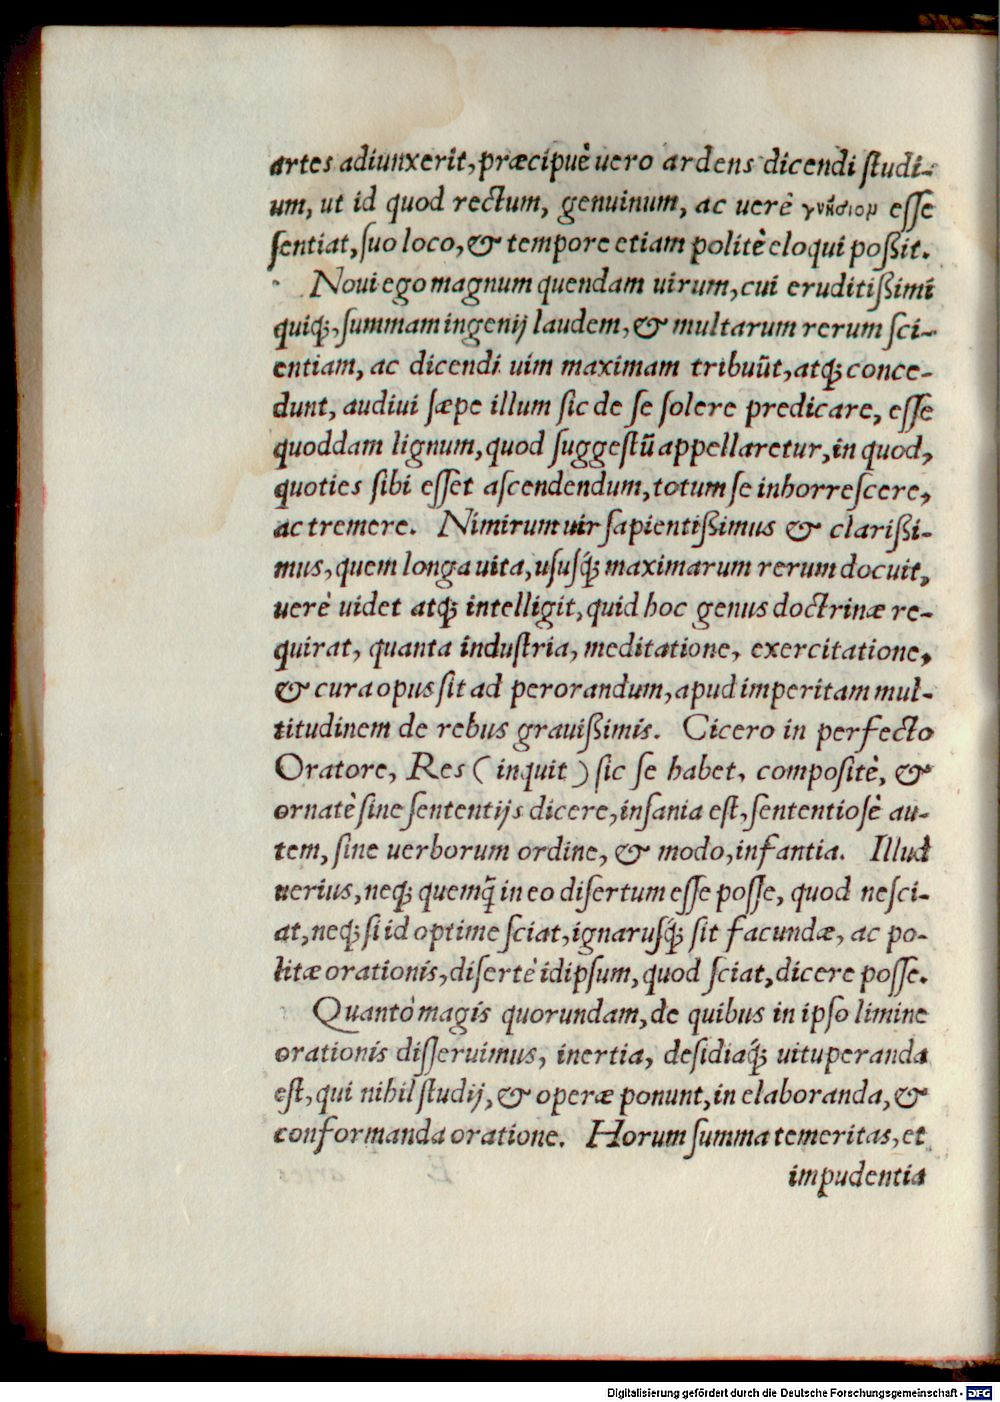 artes adiunxerit, præcipuè uero ardens dicendi ſtudi-
um, ut id quod rectum, genuinum, ac uerè γνήσιον eſſe
ſentiat, ſuo loco, & tempore etiam politè eloqui poßit.
Noui ego magnum quendam uirum, cui eruditißimi
quiq;, ſummam ingenij laudem, & multarum rerum ſci-
entiam, ac dicendi uim maximam tribuũt, atq; conce-
dunt, audiui ſæpe illum ſic de ſe ſolere predicare, eſſe
quoddam lignum, quod ſuggeſtũ appellaretur, in quod,
quoties ſibi eſſet aſcendendum, totum ſe inhorreſcere,
ac tremere. Nimirum uir ſapientißimus & clarißi-
mus, quem longa uita, uſuſq́; maximarum rerum docuit,
uerè uidet atq; intelligit, quid hoc genus doctrinæ re-
quirat, quanta induſtria, meditatione, exercitatione,
& cura opus ſit ad perorandum, apud imperitam mul-
titudinem de rebus grauißimis. Cicero in perfecto
Oratore, Res (inquit) ſic ſe habet, compoſitè, &
ornatè ſine ſententijs dicere, inſania eſt, ſententioſè au-
tem, ſine uerborum ordine, & modo, infantia. Illud
uerius, neq; quemq̃ in eo diſertum eſſe poſſe, quod neſci-
at, neq; ſi id optime ſciat, ignaruſq́; ſit facundæ, ac po-
litæ orationis, diſertè idipſum, quod ſciat, dicere poſſe.
Quantò magis quorundam, de quibus in ipſo limine
orationis diſſeruimus, inertia, deſidiaq́; uituperanda
eſt, qui nihil ſtudij, & operæ ponunt, in elaboranda, &
conformanda oratione. Horum ſumma temeritas, et
impudentia
Digitalisierung gefördert durch die Deutsche Forschungsgemeinschaft - DFG